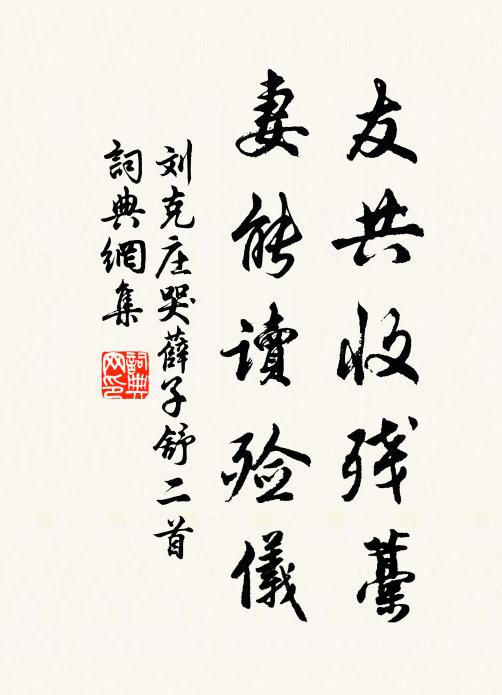 友共收残藁
妻能读殓儀
刘克庄哭薛子舒二首
詞典網集
詞典网印